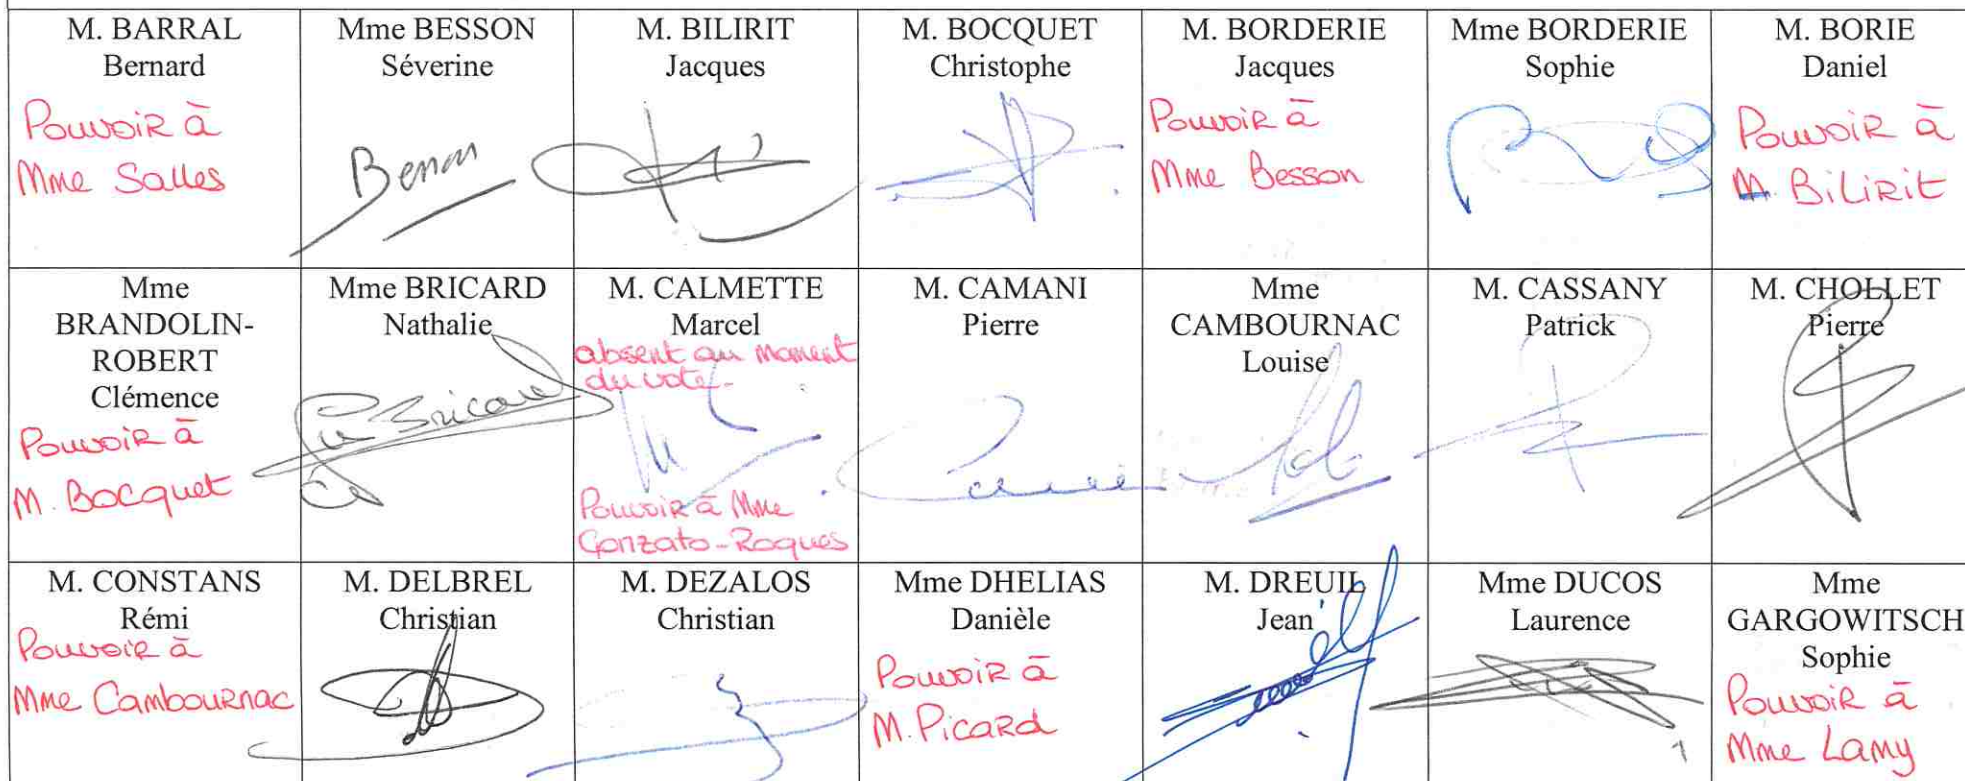 M. BARRAL
Bernard
Pouvoir à
Mme Salles
Mme BESSON
Séverine
Besson
M. BILIRIT
Jacques
M. BOCQUET
Christophe
M. BORDERIE
Jacques
Pouvoir à
Mme Besson
Mme BORDERIE
Sophie
M. BORIE
Daniel
Pouvoir à
M. BiLiRit
Mme
BRANDOLIN-
ROBERT
Clémence
Pouvoir à
M. Bocquet
Mme BRICARD
Nathalie
Bricard
M. CALMETTE
Marcel
absent au moment
du vote-
Pouvoir à Mme
Gonzato-Roques
M. CAMANI
Pierre
Mme
CAMBOURNAC
Louise
M. CASSANY
Patrick
M. CHOLLET
Pierre
M. CONSTANS
Rémi
Pouvoir à
Mme Cambournac
M. DELBREL
Christian
M. DEZALOS
Christian
Mme DHELIAS
Danièle
Pouvoir à
M. Picard
M. DREUIL
Jean
Mme DUCOS
Laurence
Mme
GARGOWITSCH
Sophie
Pouvoir à
Mme Lamy